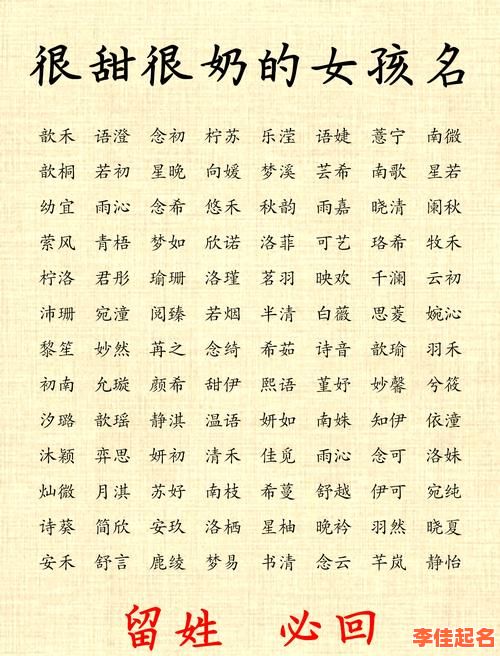 很甜很奶的女孩名
歆禾 语澄 念初 柠苏 乐滢 语婕 薏宁 南微
歆桐 若初 星晚 向媛 梦溪 芸希 南歌 星若
幼宜 雨沁 念希 悠禾 秋韵 雨嘉 晓清 阑秋
萦风 青梧 梦如 欣诺 洛菲 可艺 珞希 牧禾
柠洛 君彤 瑜珊 洛瑾 茗羽 映欢 千澜 云初
沛珊 宛潼 阅臻 若烟 半清 白薇 思菱 婉沁
黎笙 妙然 苒之 念绮 希茹 诗音 歆瑜 羽禾
初南 允璇 颜希 甜伊 熙语 堇妤 妙馨 兮筱
汐璐 歆瑶 静淇 温语 妍如 南姝 知伊 依潼
沐颖 弈思 妍初 清禾 佳觅 雨沁 念可 洛姝
灿微 月淇 苏好 南枝 希蔓 舒越 伊可 宛纯
诗葵 简欣 安玖 洛栖 星柚 晚衿 羽然 晓夏
安禾 舒言 鹿绫 梦易 书清 念云 芊岚 静怡
留姓 必回
李佳起名